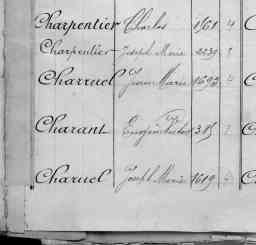 Charpentier Charles 1,61 4
Charpentier Joseph Marie 2239
Charruel Jean Marie 1693 4
Charant Eugène Victor 315
Charuel Joseph Marie 1619